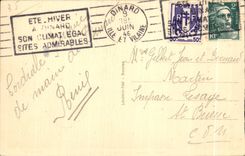 ETE-HIVER
A DINARD
SON CLIMAT EGAL
SITES ADMIRABLES
DINARD
JUIN
ILLE ET VILAINE
Cordiale
de main
Denis
Mr Gilbert Jean et Bernard
Martin
Impasse Lesage
St Brieuc
C.D.N